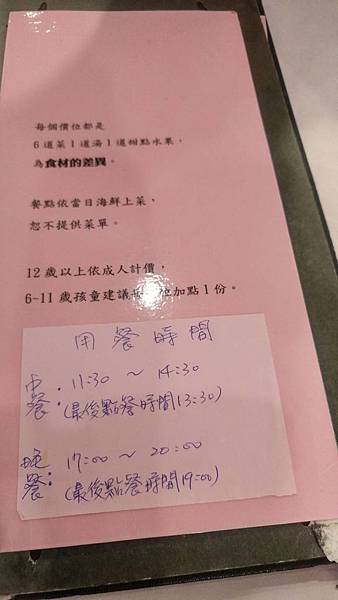 每個價位都是
6道菜1道湯1道甜點水果,
為食材的差異。
餐點依當日海鮮上菜,
恕不提供菜單。
12歲以上依成人計價,
6-11歲孩童建議 位加點1份。
用餐時間
中餐: 11:30 ~ 14:30
(最後點餐時間13:30)
晚餐: 17:00 ~ 20:00
(最後點餐時間19:00)